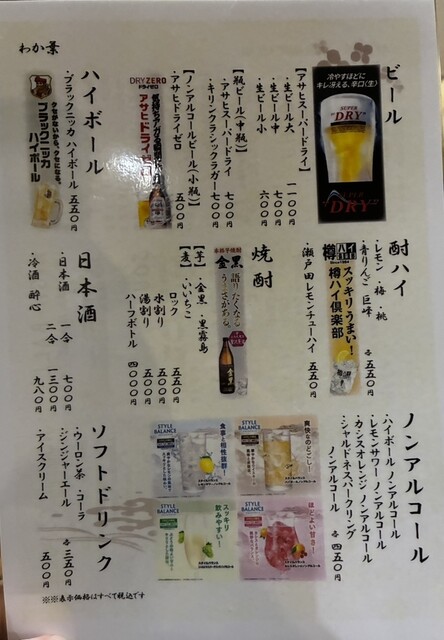 わか葉
ビール
【アサヒスーパードライ】
・生ビール大 一一〇〇円
・生ビール中 七〇〇円
・生ビール小 六〇〇円
【瓶ビール(中瓶)】
・アサヒスーパードライ 七〇〇円
・キリンクラシックラガー 七〇〇円
【ノンアルコールビール(小瓶)】
・アサヒドライゼロ 五〇〇円
冷やすほどに
キレ冴える、辛口(生)
SUPER
"DRY"
SUPER
DRY
DRYZERO
ドライゼロ
アサヒドライゼロ
ハイボール
・ブラックニッカ ハイボール 五五〇円
クセがないから、クセになる。
ブラックニッカ
ハイボール
酎ハイ
・レモン・梅・桃
青りんご・巨峰 各五五〇円
・瀬戸田レモンチューハイ 五五〇円
樽ハイ
スッキリうまい!
樽ハイ倶楽部
焼酎
【芋】・金黒・黒霧島
【麦】・いいちこ
ロック 五五〇円
水割り 五〇〇円
湯割り 五〇〇円
ハーフボトル 四〇〇〇円
本格芋焼酎
金黒
語りたくなる
うまさがある。
日本酒
・日本酒 一合 七〇〇円
二合 一三〇〇円
・冷酒 酔心 九八〇円
ノンアルコール
・ハイボールノンアルコール
・レモンサワーノンアルコール
・カシスオレンジノンアルコール
・シャルドネスパークリング
ノンアルコール 各四五〇円
STYLE BALANCE
爽快なのどごし!
STYLE BALANCE
食事と相性抜群!
STYLE BALANCE
ほどよい甘さ!
STYLE BALANCE
スッキリ
飲みやすい!
ソフトドリンク
・ウーロン茶・コーラ
・ジンジャーエール 各三五〇円
・アイスクリーム 五〇〇円
※※表示価格はすべて税込です